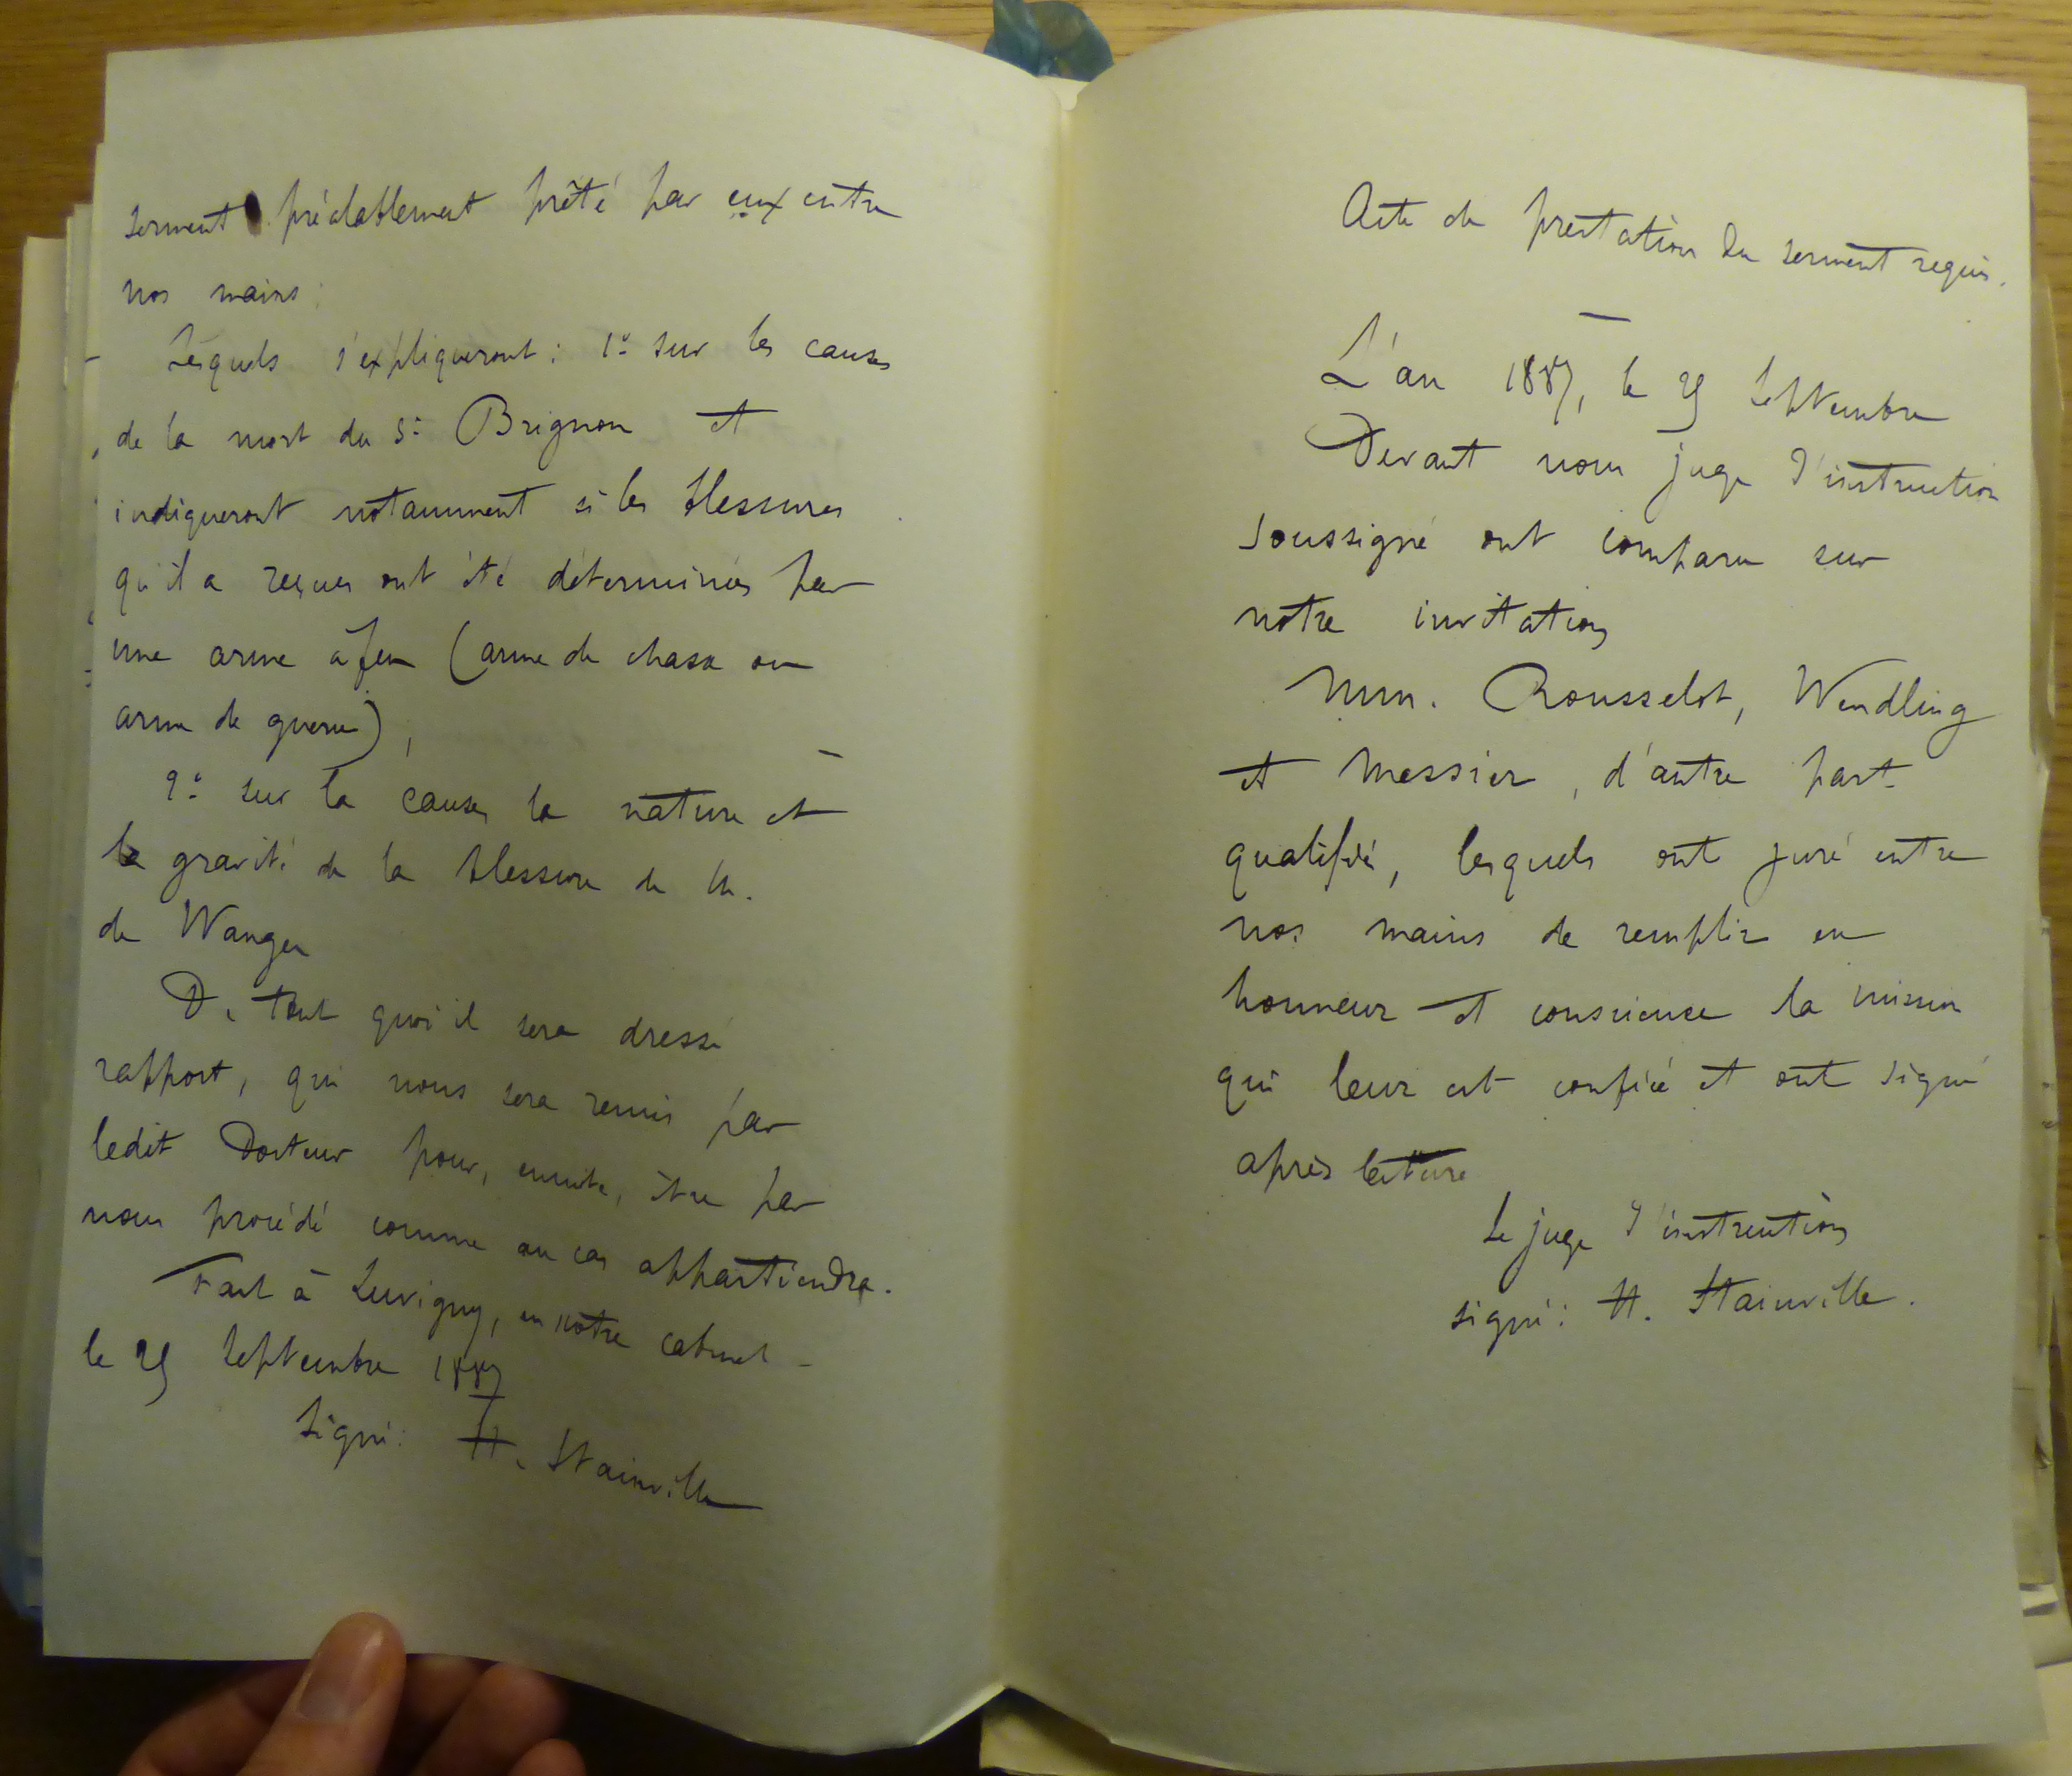 serment préalablement prêté par eux entre
nos mains :
Lesquels s'expliqueront : 1º sur les causes
de la mort du Sr Brignon et
indiqueront notamment si les blessures
qu'il a reçues ont été déterminées par
une arme à feu (arme de chasse ou
arme de guerre),
2º sur la cause, la nature et
la gravité de la blessure de M.
de Wangen
De tout quoi il sera dressé
rapport, qui nous sera remis par
ledit Docteur pour, ensuite, être par
nous procédé comme au cas appartiendra.
Fait à Luvigny, en notre cabinet -
le 25 Septembre 1887
Signé : H. Stainville
Acte de prestation du serment requis.
L'an 1887, le 25 Septembre
Devant nous juge d'instruction
soussigné ont comparu sur
notre invitation
MM. Rousselot, Wendling
et Messier, d'autre part
qualifié, lesquels ont juré entre
nos mains de remplir en
honneur et conscience la mission
qui leur est confiée et ont signé
après lecture
Le juge d'instruction
signé : H. Stainville.